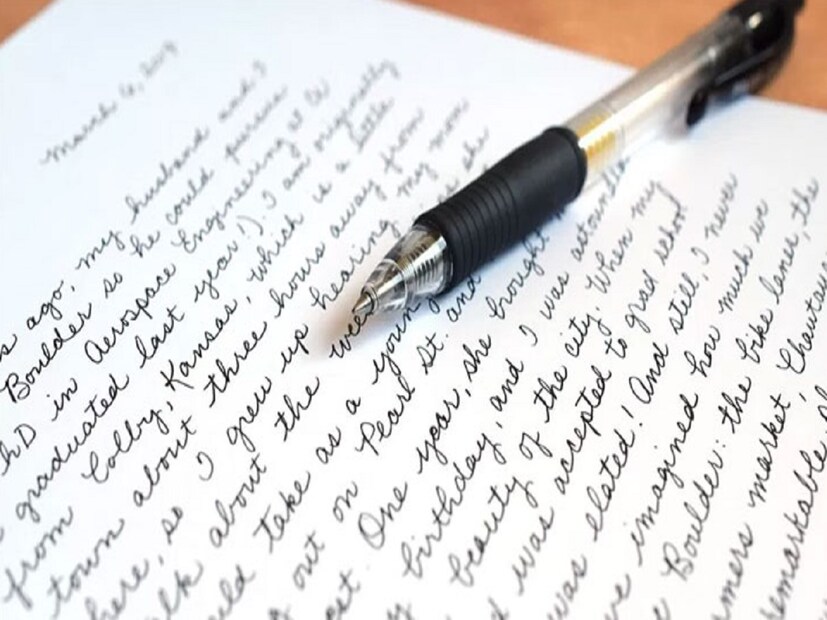 March 6, 2019
s ago, my husband and I
Boulder so he could pursue
hD in Aerospace Engineering at C
graduated last year!). I am originally
from Colby, Kansas, which is a little
town about three hours away from
here, so I grew up hearing my mom
lk about the wee she
uld take as a young
g out on Pearl St. and
est. One year, she brought
birthday, and I was astounde
beauty of the city. When my
d was accepted to grad school
was elated! And still, I never
ve imagined how much we
e Boulder: the bike lanes, the
rmers market, Chautau
emarkable